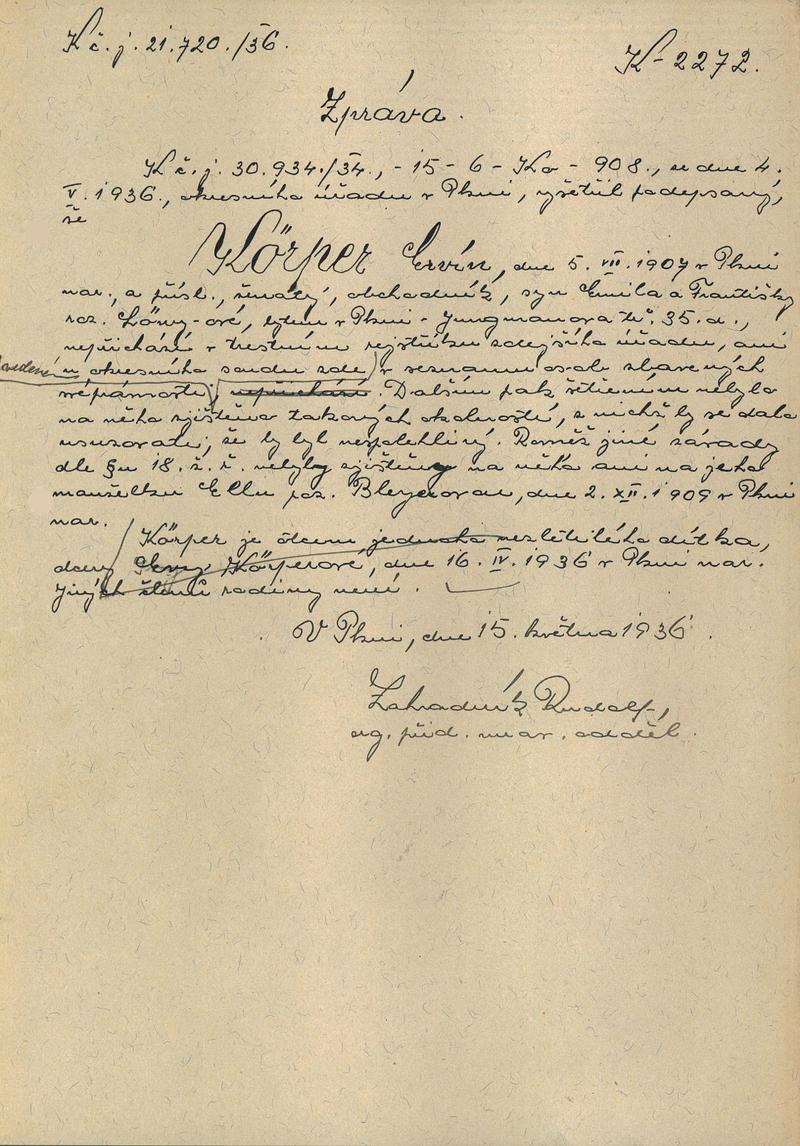 K č. j. 21.720./36.
K - 2272.
Zpráva.
K č. j. 30.934./34., - 15 - 6 - Ko - 908., ze dne 4.
V. 1936., okresního úřadu v Plzni, vyšetřil podepsaný,
že
Körper Ervín, dne 5. VII. 1907 v Plzni
nar., a přísl., ženatý, obchodník, syn Emila a Františky
roz. Löwy-ové, bytem v Plzni - Jungmanova tř. 35.d.,
nepřichází v trestním rejstříku zdejšího úřadu, ani
vedeném u okresního soudu zde) v seznamu osob zbavených
svéprávnosti, nepřichází. Dalším pak šetřením nebylo
na něho zjištěno takových okolností, z nichž by se dalo
usuzovati, že by byl nespolehlivý. Rovněž jiné závady
dle §u 18. ž. ř. nebyly zjištěny na něho ani na jeho
manželku Ellu roz. Bleyerovou, dne 2. XII. 1909 v Plzni
nar.
Körper je otcem jednoho nezletilého dítka,
dcery Körperové, dne 16. IV. 1936 v Plzni nar.
Jiných členů rodiny není.
V Plzni, dne 15. května 1936.
Zahradník Rudolf,
úřed. odděl.